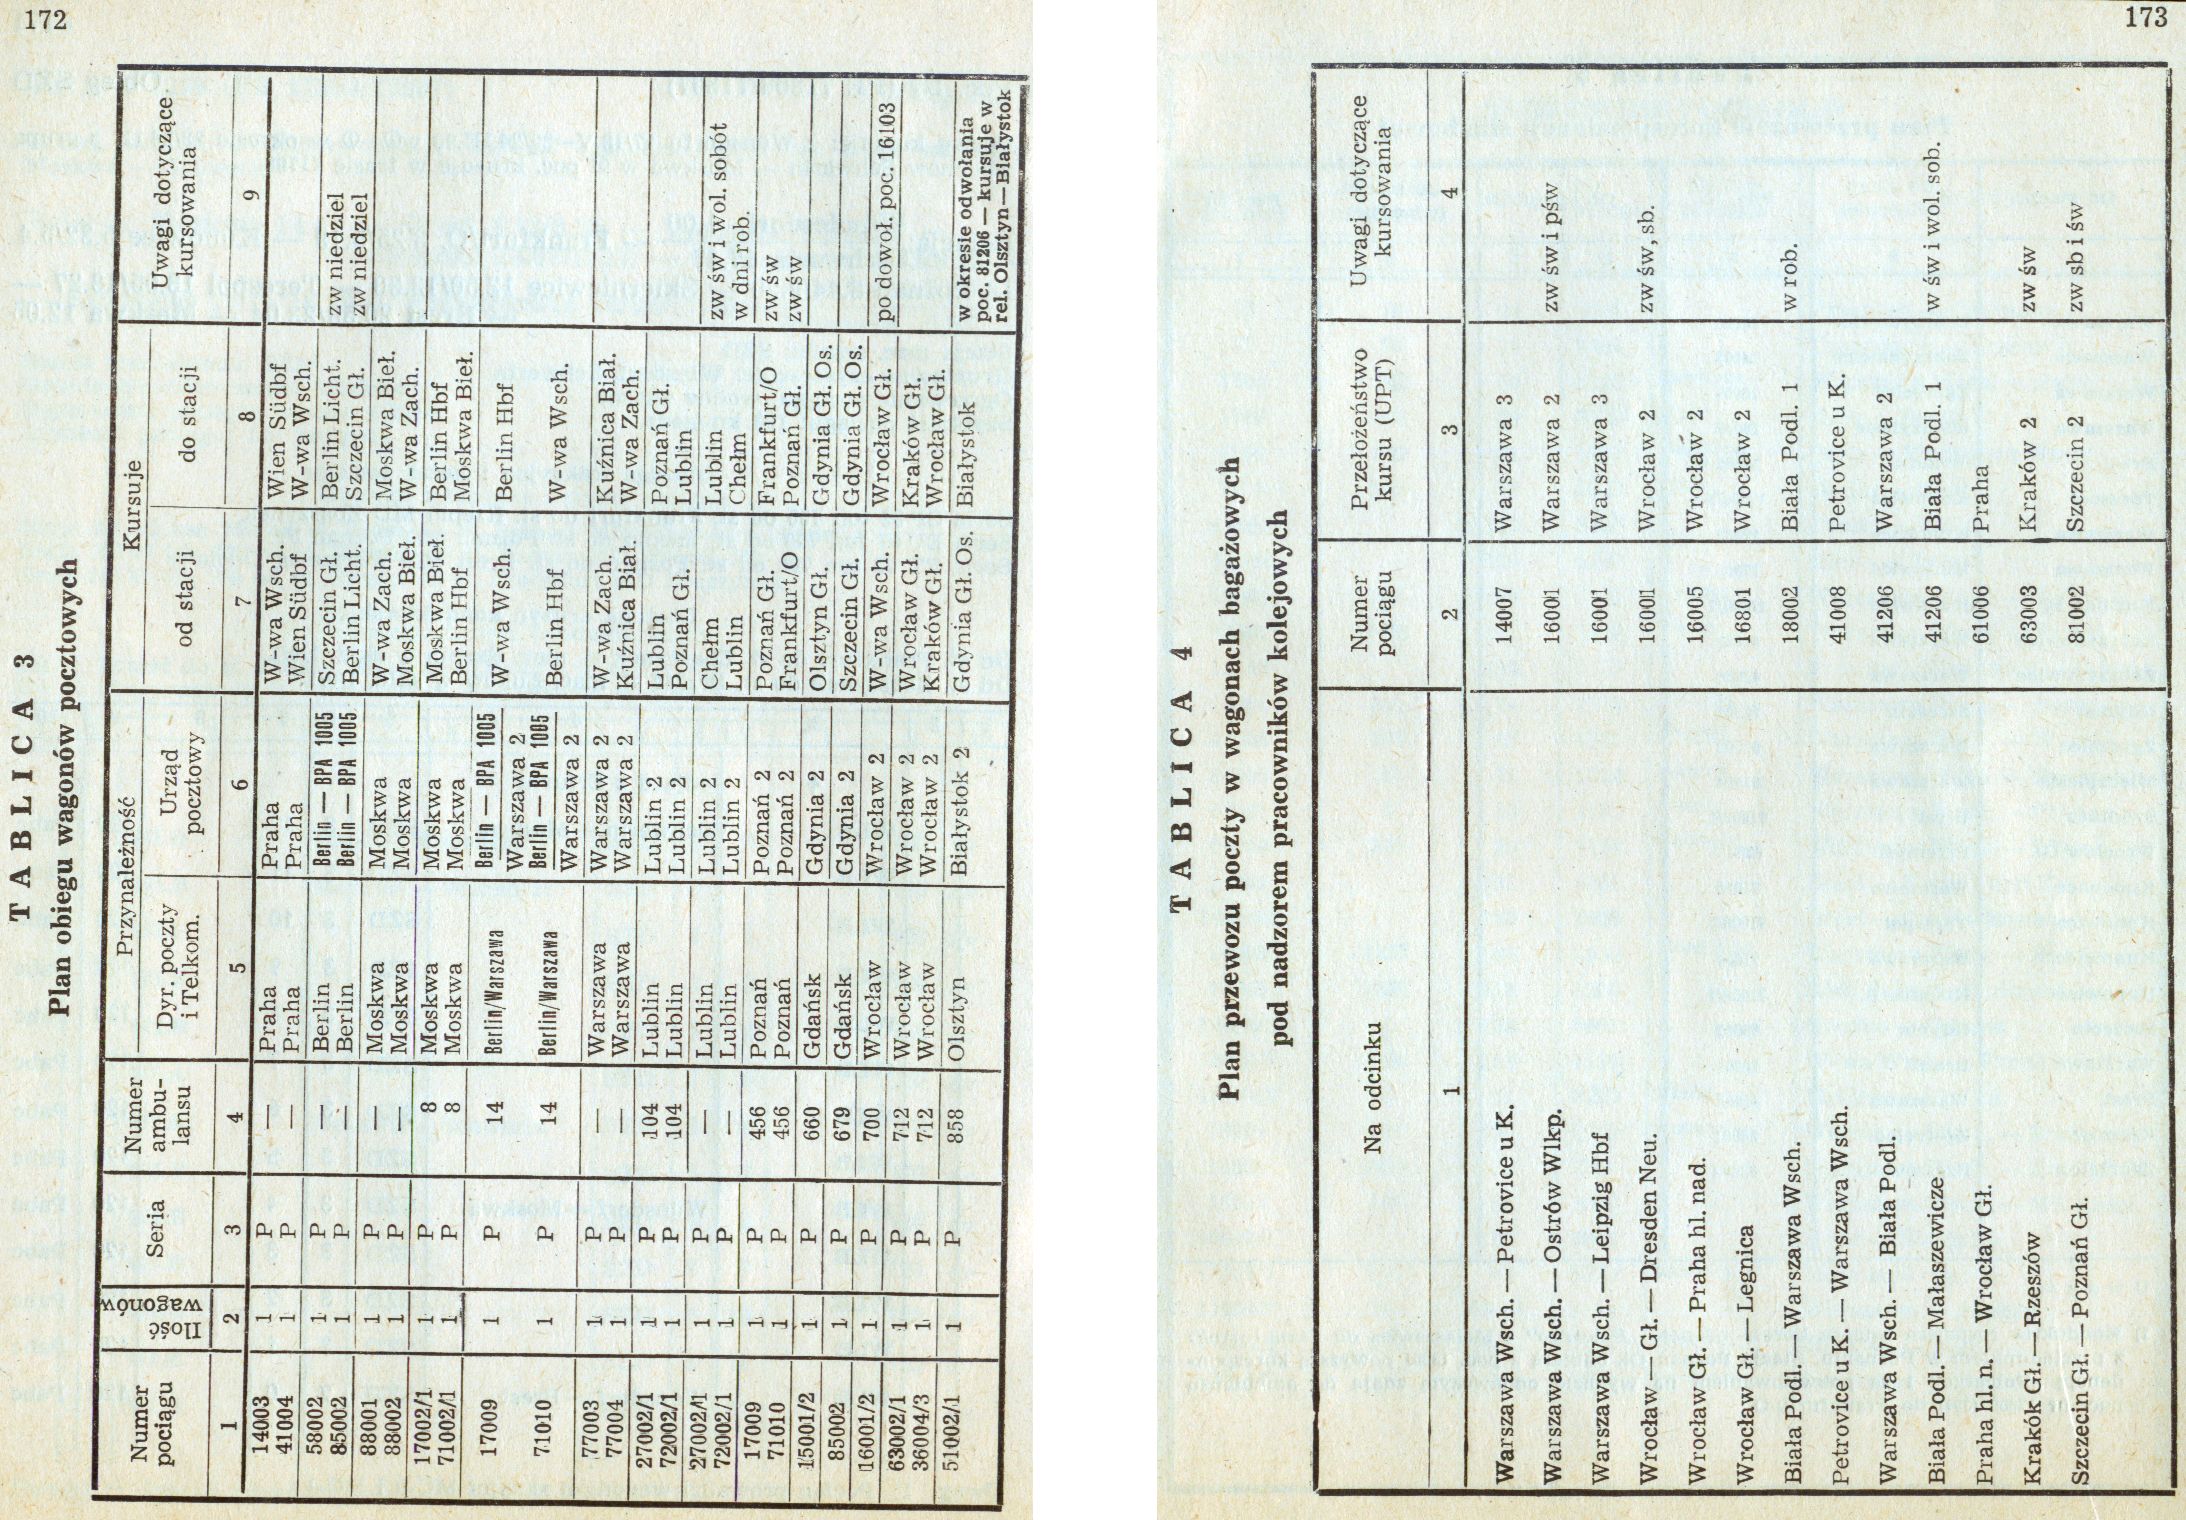 172
TABLICA 3
Plan obiegu wagonów pocztowych
Numer pociągu | Ilość wagonów | Seria | Numer ambu-lansu | Przynależność | Kursuje | Uwagi dotyczące kursowania
Dyr. poczty i Telkom. | Urząd pocztowy | od stacji | do stacji
1 | 2 | 3 | 4 | 5 | 6 | 7 | 8 | 9
14003 | 1 | P | — | Praha | Praha | W-wa Wsch. | Wien Südbf
41004 | 1 | P | — | Praha | Praha | Wien Südbf | W-wa Wsch.
58002 | 1 | P | — | Berlin | Berlin — BPA 1005 | Szczecin Gł. | Berlin Licht. | zw niedziel
85002 | 1 | P | — | Berlin | Berlin — BPA 1005 | Berlin Licht. | Szczecin Gł. | zw niedziel
88001 | 1 | P | — | Moskwa | Moskwa | W-wa Zach. | Moskwa Bieł.
88002 | 1 | P | — | Moskwa | Moskwa | Moskwa Bieł. | W-wa Zach.
17002/1 | 1 | P | 8 | Moskwa | Moskwa | Moskwa Bieł. | Berlin Hbf
71002/1 | 1 | P | 8 | Moskwa | Moskwa | Berlin Hbf | Moskwa Bieł.
17009 | 1 | P | 14 | Berlin/Warszawa | Berlin — BPA 1005 Warszawa 2 | W-wa Wsch. | Berlin Hbf
71010 | 1 | P | 14 | Berlin/Warszawa | Berlin — BPA 1005 Warszawa 2 | Berlin Hbf | W-wa Wsch.
77003 | 1 | P | — | Warszawa | Warszawa 2 | W-wa Zach. | Kuźnica Biał.
77004 | 1 | P | — | Warszawa | Warszawa 2 | Kuźnica Biał. | W-wa Zach.
27002/1 | 1 | P | 104 | Lublin | Lublin 2 | Lublin | Poznań Gł.
72002/1 | 1 | P | 104 | Lublin | Lublin 2 | Poznań Gł. | Lublin
27002/1 | 1 | P | — | Lublin | Lublin 2 | Chełm | Lublin | zw św i wol. sobót
72002/1 | 1 | P | — | Lublin | Lublin 2 | Lublin | Chełm | w dni rob.
17009 | 1 | P | 456 | Poznań | Poznań 2 | Poznań Gł. | Frankfurt/O | zw św
71010 | 1 | P | 456 | Poznań | Poznań 2 | Frankfurt/O | Poznań Gł. | zw św
15001/2 | 1 | P | 660 | Gdańsk | Gdynia 2 | Olsztyn Gł. | Gdynia Gł. Os.
85002 | 1 | P | 679 | Gdańsk | Gdynia 2 | Szczecin Gł. | Gdynia Gł. Os.
16001/2 | 1 | P | 700 | Wrocław | Wrocław 2 | W-wa Wsch. | Wrocław Gł. | po dowoł. poc. 16103
63002/1 | 1 | P | 712 | Wrocław | Wrocław 2 | Wrocław Gł. | Kraków Gł.
36004/3 | 1 | P | 712 | Wrocław | Wrocław 2 | Kraków Gł. | Wrocław Gł.
51002/1 | 1 | P | 858 | Olsztyn | Białystok 2 | Gdynia Gł. Os. | Białystok | w okresie odwołania poc. 81206 — kursuje w rel. Olsztyn—Białystok
173
TABLICA 4
Plan przewozu poczty w wagonach bagażowych
pod nadzorem pracowników kolejowych
Na odcinku | Numer pociągu | Przełożeństwo kursu (UPT) | Uwagi dotyczące kursowania
1 | 2 | 3 | 4
Warszawa Wsch. — Petrovice u K. | 14007 | Warszawa 3
Warszawa Wsch. — Ostrów Wlkp. | 16001 | Warszawa 2 | zw św i pśw
Warszawa Wsch. — Leipzig Hbf | 16001 | Warszawa 3
Wrocław — Gł. — Dresden Neu. | 16001 | Wrocław 2 | zw św, sb.
Wrocław Gł. — Praha hl. nad. | 16005 | Wrocław 2
Wrocław Gł. — Legnica | 16801 | Wrocław 2
Biała Podl. — Warszawa Wsch. | 18002 | Biała Podl. 1 | w rob.
Petrovice u K. — Warszawa Wsch. | 41008 | Petrovice u K.
Warszawa Wsch. — Biała Podl. | 41206 | Warszawa 2
Biała Podl. — Małaszewicze | 41206 | Biała Podl. 1 | w św i wol. sob.
Praha hl. n. — Wrocław Gł. | 61006 | Praha
Krakók Gł. — Rzeszów | 63003 | Kraków 2 | zw św
Szczecin Gł. — Poznań Gł. | 81002 | Szczecin 2 | zw sb i św